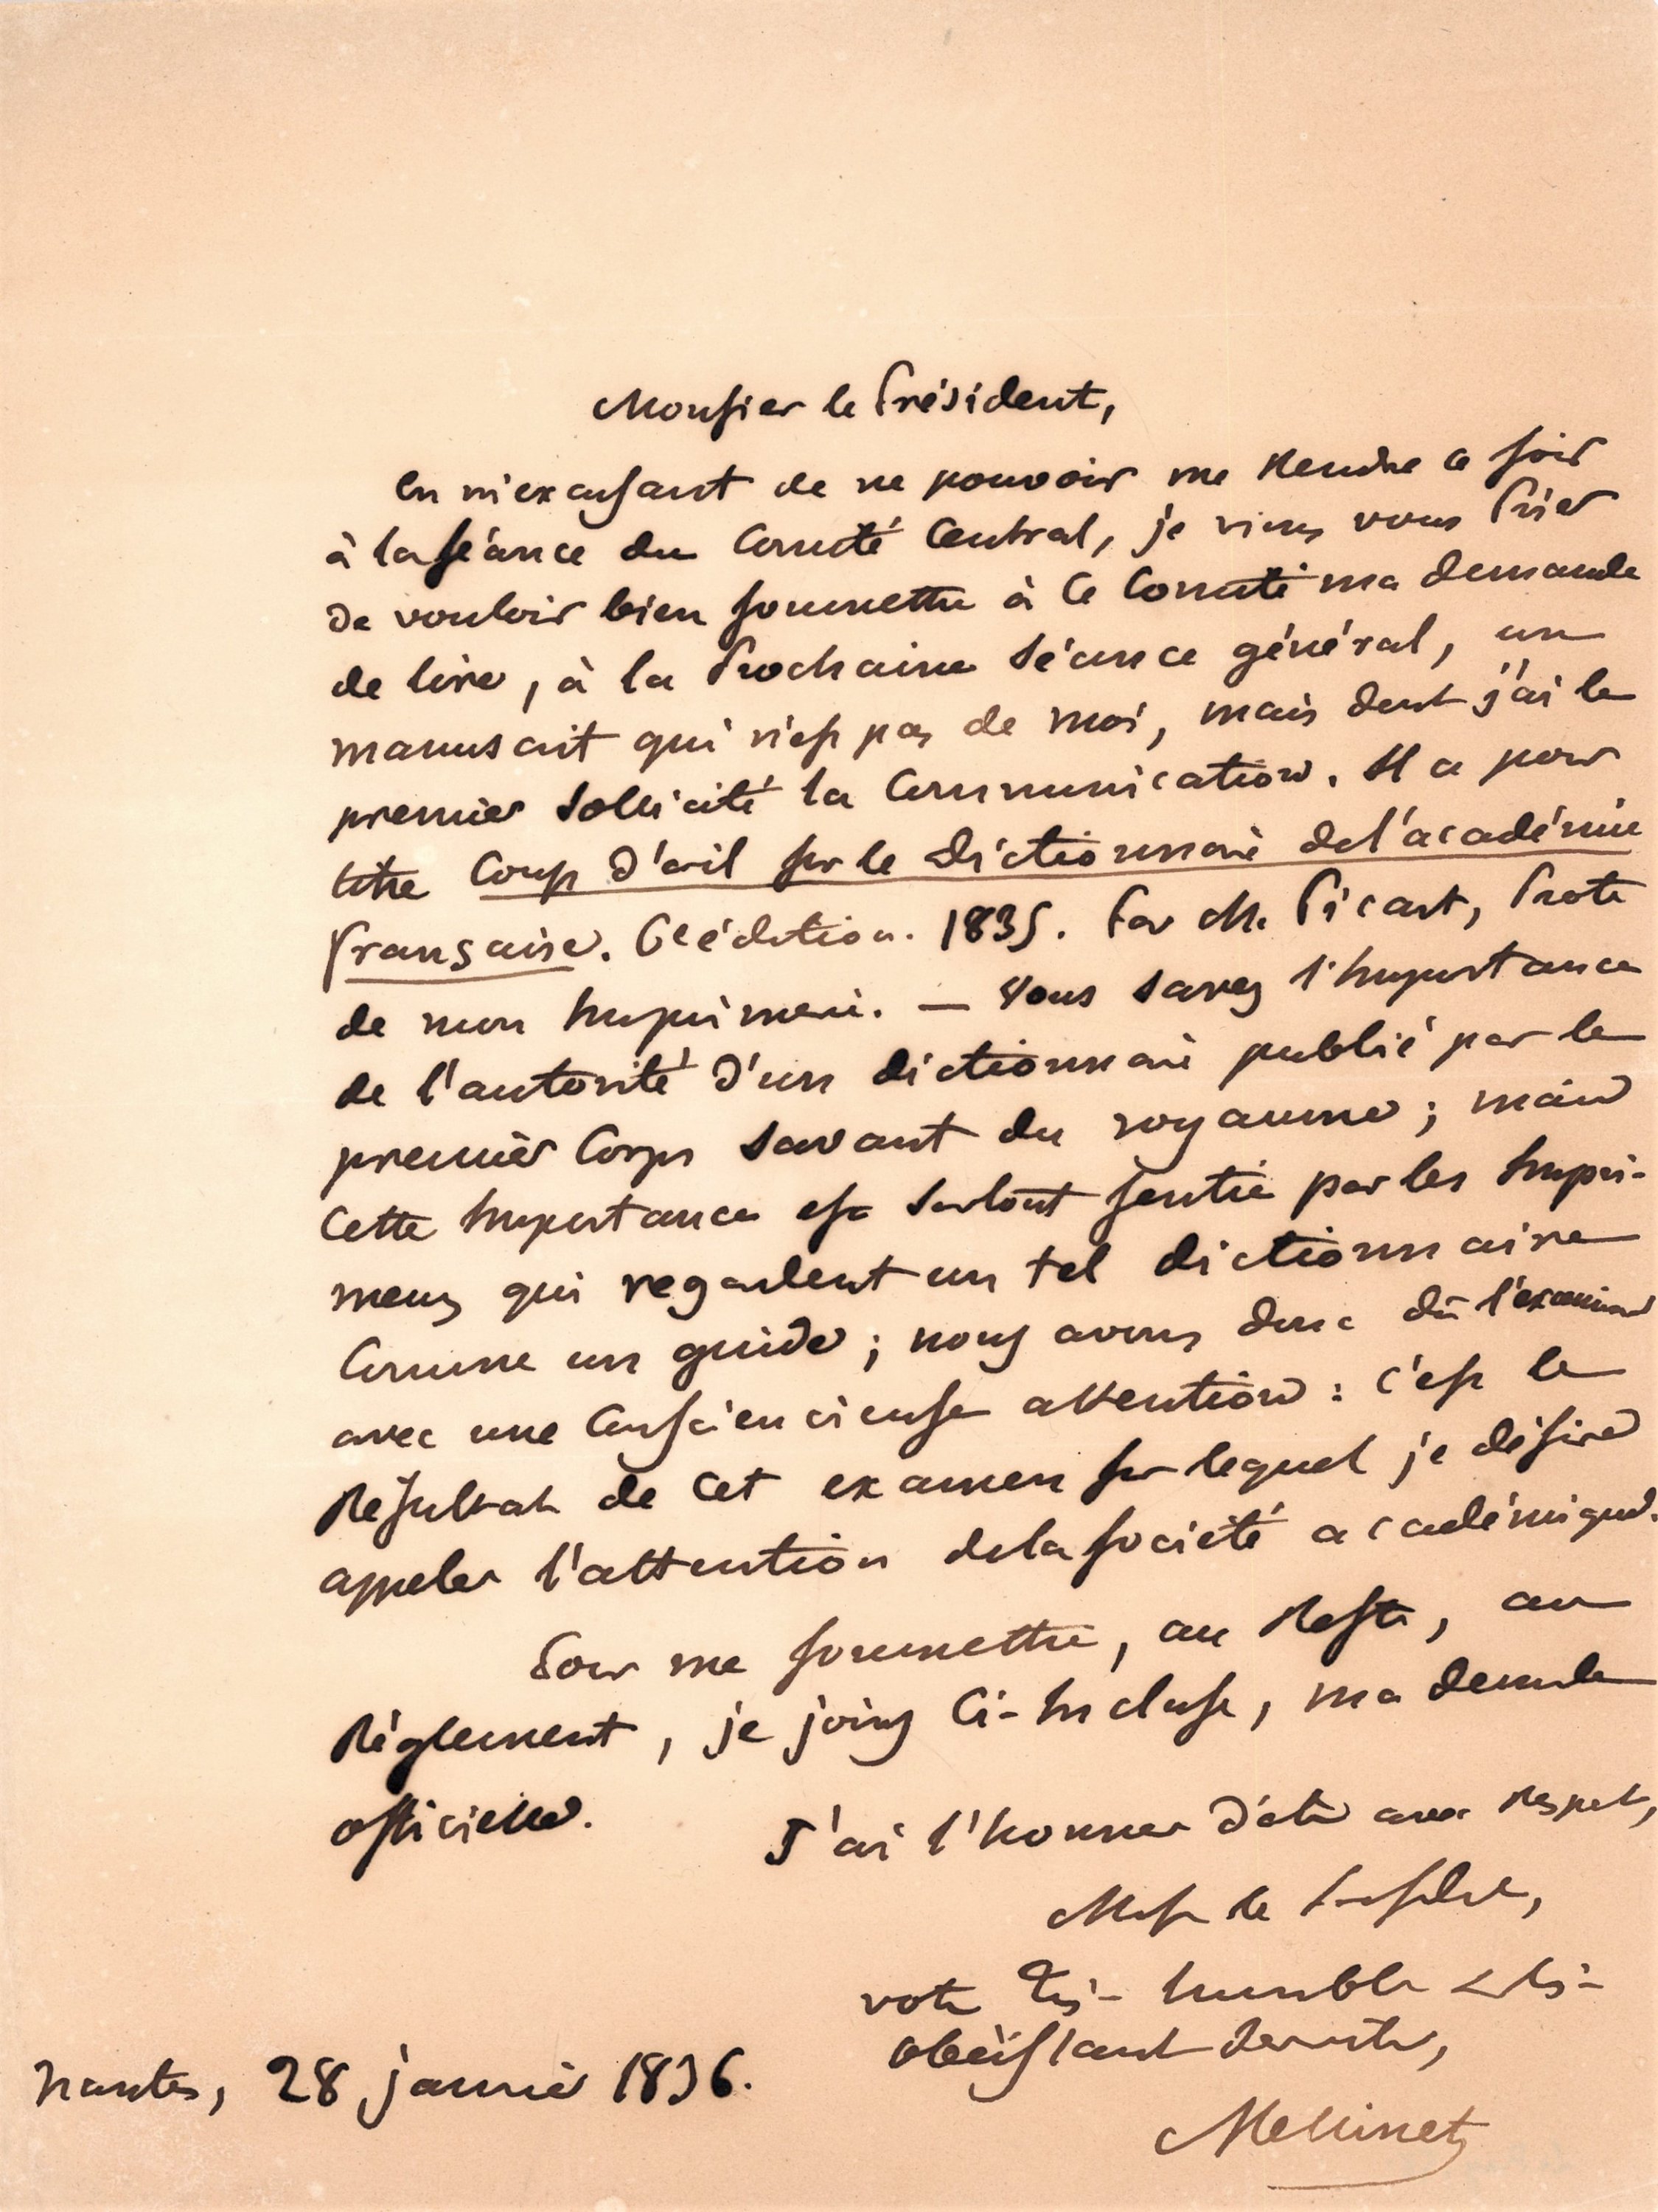 Monsieur le Président,
En m'excusant de ne pouvoir me Rendre ce soir
à la séance du Comité Central, je viens vous Prier
De vouloir bien soumettre à Ce Comité ma demande
de lire, à la Prochaine Séance général, un
manuscrit qui n'est pas de moi, mais dont j'ai le
premier Sollicité la Communication. Il a pour
titre Coup d'œil sur le Dictionnaire de l'académie
française. 6e édition. 1835. Par M. Picart, Prote
de mon Imprimerie. — Vous Savez l'Importance
de l'autorité d'un dictionnaire publié par le
premier Corps Savant du royaume; mais
Cette Importance est Surtout sentie par les Impri-
meurs qui regardent un tel dictionnaire
Comme un guide; nous avons donc dû l'examiner
avec une Consciencieuse attention : c'est le
Résultat de Cet examen sur lequel je désire
appeler l'attention de la Société académique.
Pour me soumettre, au Reste, au
Règlement, je joins Ci-Incluse, ma demande
officielle.
J'ai l'honneur d'être avec Respect,
Mons le Président,
votre très-humble & très-
obéissant serviteur,
Nantes, 28 janvier 1836.
Mellinet